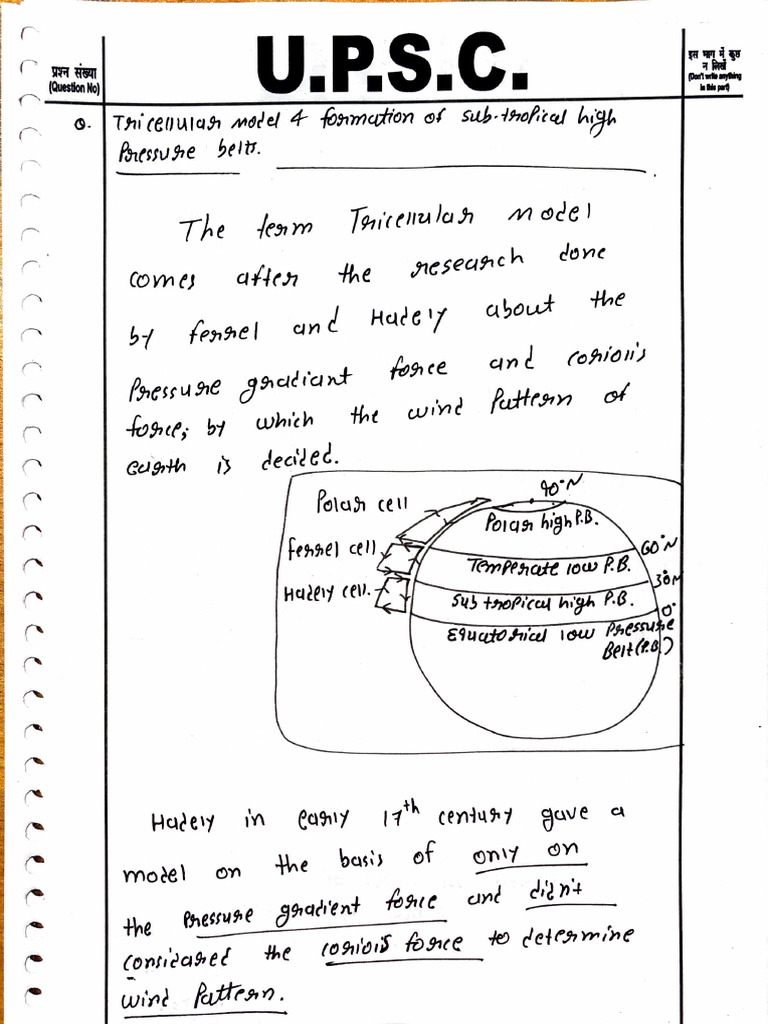 U.P.S.C.
प्रश्न संख्या
(Question No)
इस भाग में कुछ
न लिखें
(Don't write anything
in this part)
Q. Tricellular model & formation of sub-tropical high
Pressure belts.
The term Tricellular model
comes after the research done
by ferrel and Hadely about the
Pressure gradiant force and coriolis
force; by which the wind Pattern of
earth is decided.
90°N
Polar cell
Polar high P.B.
ferrel cell
60°N
Temperate low P.B.
30°N
Hadely cell.
Sub tropical high P.B.
0°
Equatorical low Pressure
Belt (P.B.)
Hadely in early 17th century gave a
model on the basis of only on
the Pressure gradient force and didn't
considared the coriolis force to determine
wind Pattern.